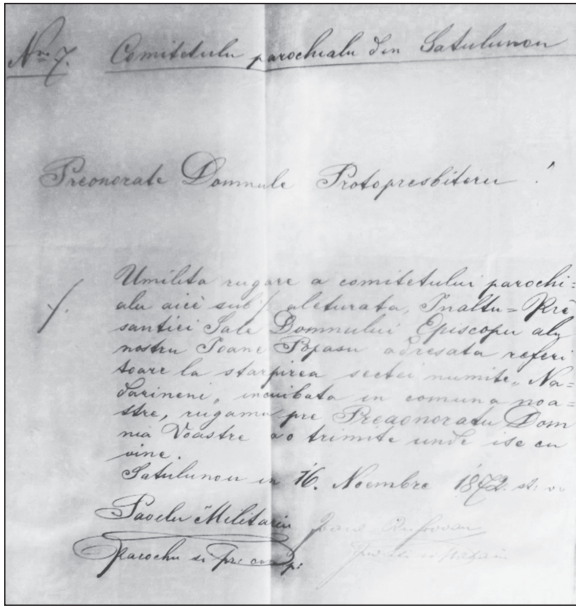 Nr. 7. Comitetulu parochialu din Satulunou
Preonorate Domnule Protopresbiteru!
Umilita rugare a comitetului parochi=
alu aici sub /. aleturata, Inaltu=Pré
santiei Sale Domnului Episcopu alu
nostru Ioane Popasu adresata referi
toare la starpirea sectei numite "Na
zarineni, incuibata in comuna noa=
stre, rugamu pre Preaonoratu Dom
nia Voastre a o trimite unde ise cu
vine.
Satulunou in 16. Noembre 1872. st. v.
Pavelu Militariu
parochu si